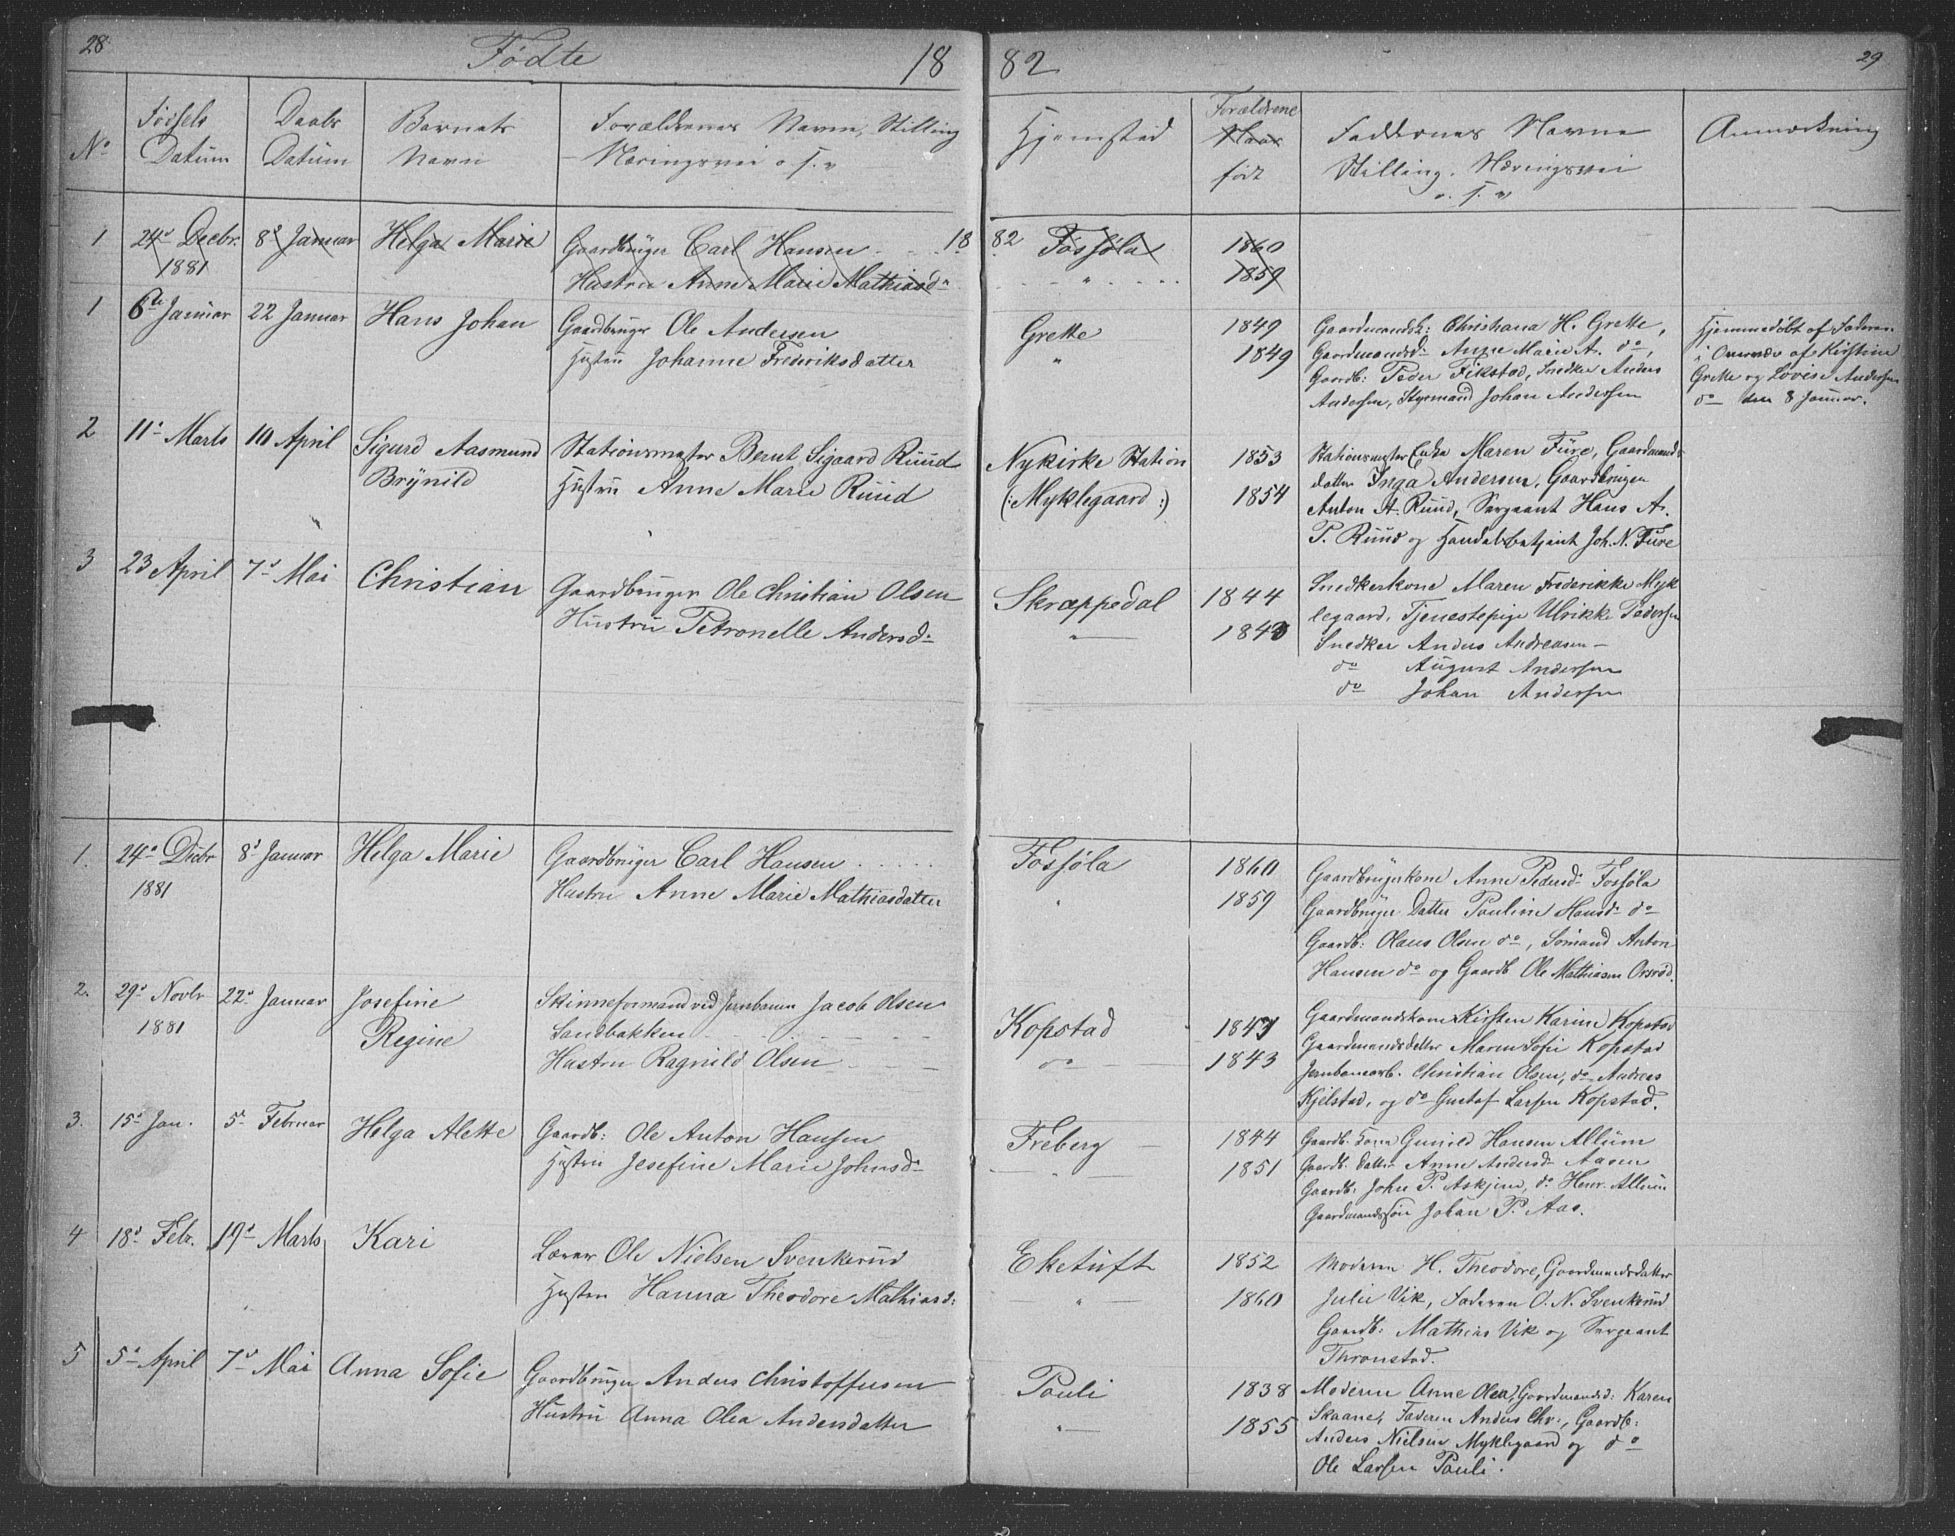 28.
Fødte
18 82
29
No
Fødsels Datum
Daabs Datum
Barnets Navn
Forældrenes Navne, Stilling
Næringsvei o. s. v
Hjemsted
Forældrene
Naar
født
Faddernes Navne
Stilling, Næringsvei
o. s. v
Anmærkning
1 24d Decbr. 8d Januar Helga Marie Gaardbruger Carl Hansen 18 82 Fossøla 1860
1881 Hustru Anne Marie Mathiasd: " 1859
1 6te Januar 22 Januar Hans Johan Gaardbruger Ole Andersen Grette 1849 Gaardmandsk: Christiana H. Grette, Hjemmedøbt af Faderen
Hustru Johanne Frederiksdatter " 1849 Gaardmandsd: Anne Marie A. do, i Overvær af Kirstine
Gaardb: Peder Fikstad, Snedker Anders Grette og Lovise Andersen
Andersen, Styrmand Johan Andersen do den 8 Januar.
2 11d Marts 10 April Sigurd Aasmund Stationsmester Bernt Sigaard Ruud Nykirke Station 1853 Stationsmester Enke Maren Fure, Gaardmands
Brynild Hustru Anne Marie Ruud (: Myklegaard :) 1854 datter Inga Andersen, Gaardbruger
Anton A. Ruud, Sergeant Hans A.
P. Ruud og Handelsbetjent Joh. N. Fure
3 23 April 7d Mai Christian Gaardbruger Ole Christian Olsen Skræppedal 1844 Snedkerkone Maren Frederikke Myk
Hustru Petronelle Andersd: " 1843 legaard, Tjenestepige Ulrikke Pedersen
Snedker Anders Andreasen
do August Andersen
do Johan Andersen
1. 24d Decbr 8d Januar Helga Marie Gaardbruger Carl Hansen Fossøla 1860 Gaardbrugerkone Anne Pedersd: Fossøla
1881 Hustru Anne Marie Mathiasdatter " 1859 Gaardbruger Datter Pauline Hansd: do
Gaardb: Olaus Olsen do, Sømand Anton
Hansen do og Gaardb Ole Mathiasen Orsrød.
2. 29d Novbr 22d Januar Josefine Skinneformand ved Jernbanen Jacob Olsen Kopstad 1847 Gaardmandskone Kirsten Karine Kopstad
1881 Regine Sandbakken do 1843 Gaardmandsdatter Maren Sofie Kopstad
Hustru Ragnild Olsen Jernbanearb. Christian Olsen, do Andreas
Kjelstad, og do Gustaf Larsen Kopstad.
3. 15d Jan. 5d Februar Helga Alette Gaardb: Ole Anton Hansen Freberg 1844 Gaardb. Kone Gunild Hansen Allum
Hustru Josefine Marie Johnsd: " 1851 Gaardb. Datter Anne Andersd: Aasen
Gaardb: John P. Askjem, do Henr. Allum
Gaardmandssøn Johan P. Aas.
4 18d Febr. 19d Marts Kari Lærer Ole Nielsen Svenkerud Eketuft 1852 Moderen H. Theodore, Gaardmandsdatter
Hustru Hanna Theodore Mathiasd: " 1860 Julie Vik, Faderen O. N. Svenkerud
Gaardb: Mathias Vik og Sergeant
Thronstad.
5 5d April 7d Mai Anna Sofie Gaardbruger Anders Christoffersen Pauli 1838 Moderen Anne Olea, Gaardmandsd: Karen
Hustru Anna Olea Andersdatter " 1855 Skaane, Faderen Anders Chr:, Gaardb:
Anders Nielsen Myklegaard og do
Ole Larsen Pauli.